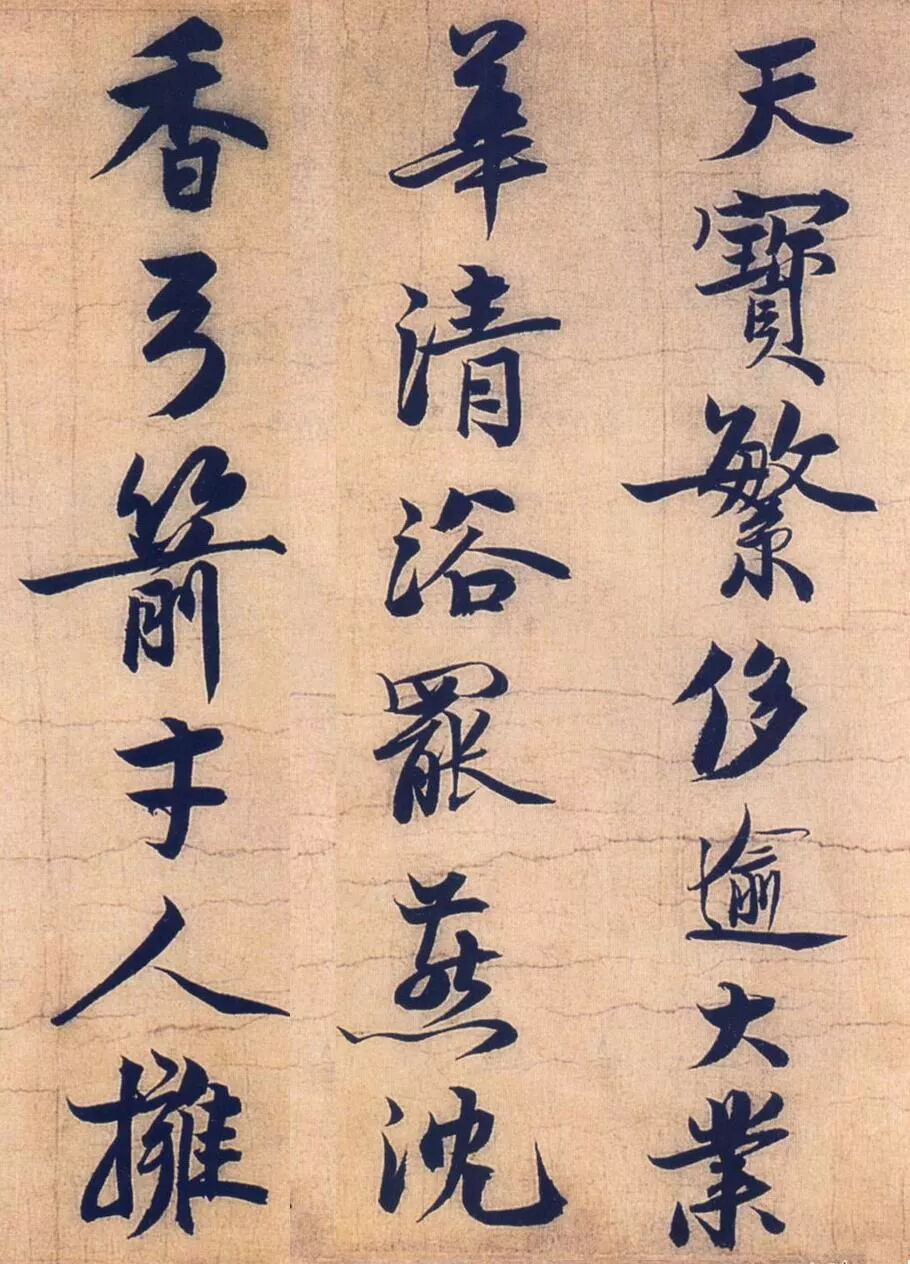 天寶繁侈逾大業
華清浴罷蓺沈
香弓箭才人擁